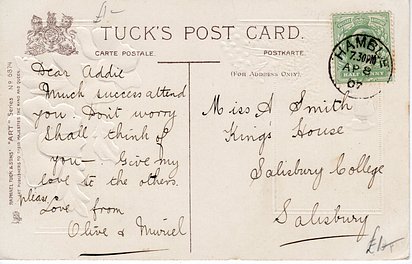 £1-
TUCK'S POST CARD.
CARTE POSTALE.
POSTKARTE.
(FOR ADDRESS ONLY)
RAPHAEL TUCK & SONS' "ART" Series
ART PUBLISHERS TO THEIR MAJESTIES THE KING AND QUEEN.
Dear Addie
Much success attend
you. Don't worry
Shall think of
you — Give my
love to the others.
please
Love from
Olive & Muriel
HAMBLE
7.30PM
AP 8
07
HALF PENNY
Miss A Smith
King's House
Salisbury College
Salisbury